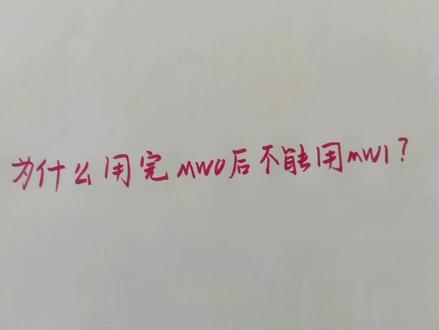 为什么用完MW0后不能用MW1?